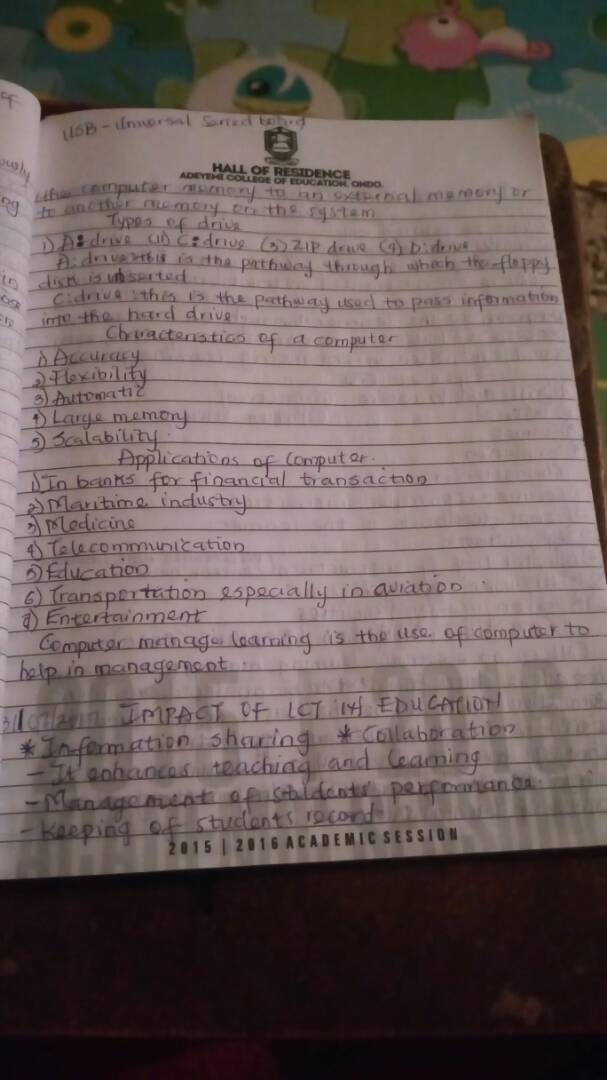 USB - Universal Serried board
HALL OF RESIDENCE
ADEYEMI COLLEGE OF EDUCATION, ONDO.
the computer memory to an external memory or
to another memory on the system
Types of drive
1) A: drive (11) C: drive (3) ZIP drive (4) D: drive
A: drive: this is the pathway through which the floppy
disk is inserted
C: drive: this is the pathway used to pass information
into the hard drive.
Characteristics of a computer
1) Accuracy
2) Flexibility
3) Automatic
4) Large memory
5) Scalability.
Applications of computer.
1) In banks for financial transaction
2) Maritime industry
3) Medicine
4) Telecommunication
5) Education
6) Transportation especially in aviation
7) Entertainment
Computer manage learning is the use of computer to
help in management
IMPACT OF ICT IN EDUCATION
* Information sharing * Collaboration
- It enhances teaching and learning
- Management of students' performance.
- Keeping of students record
2015 | 2016 ACADEMIC SESSION